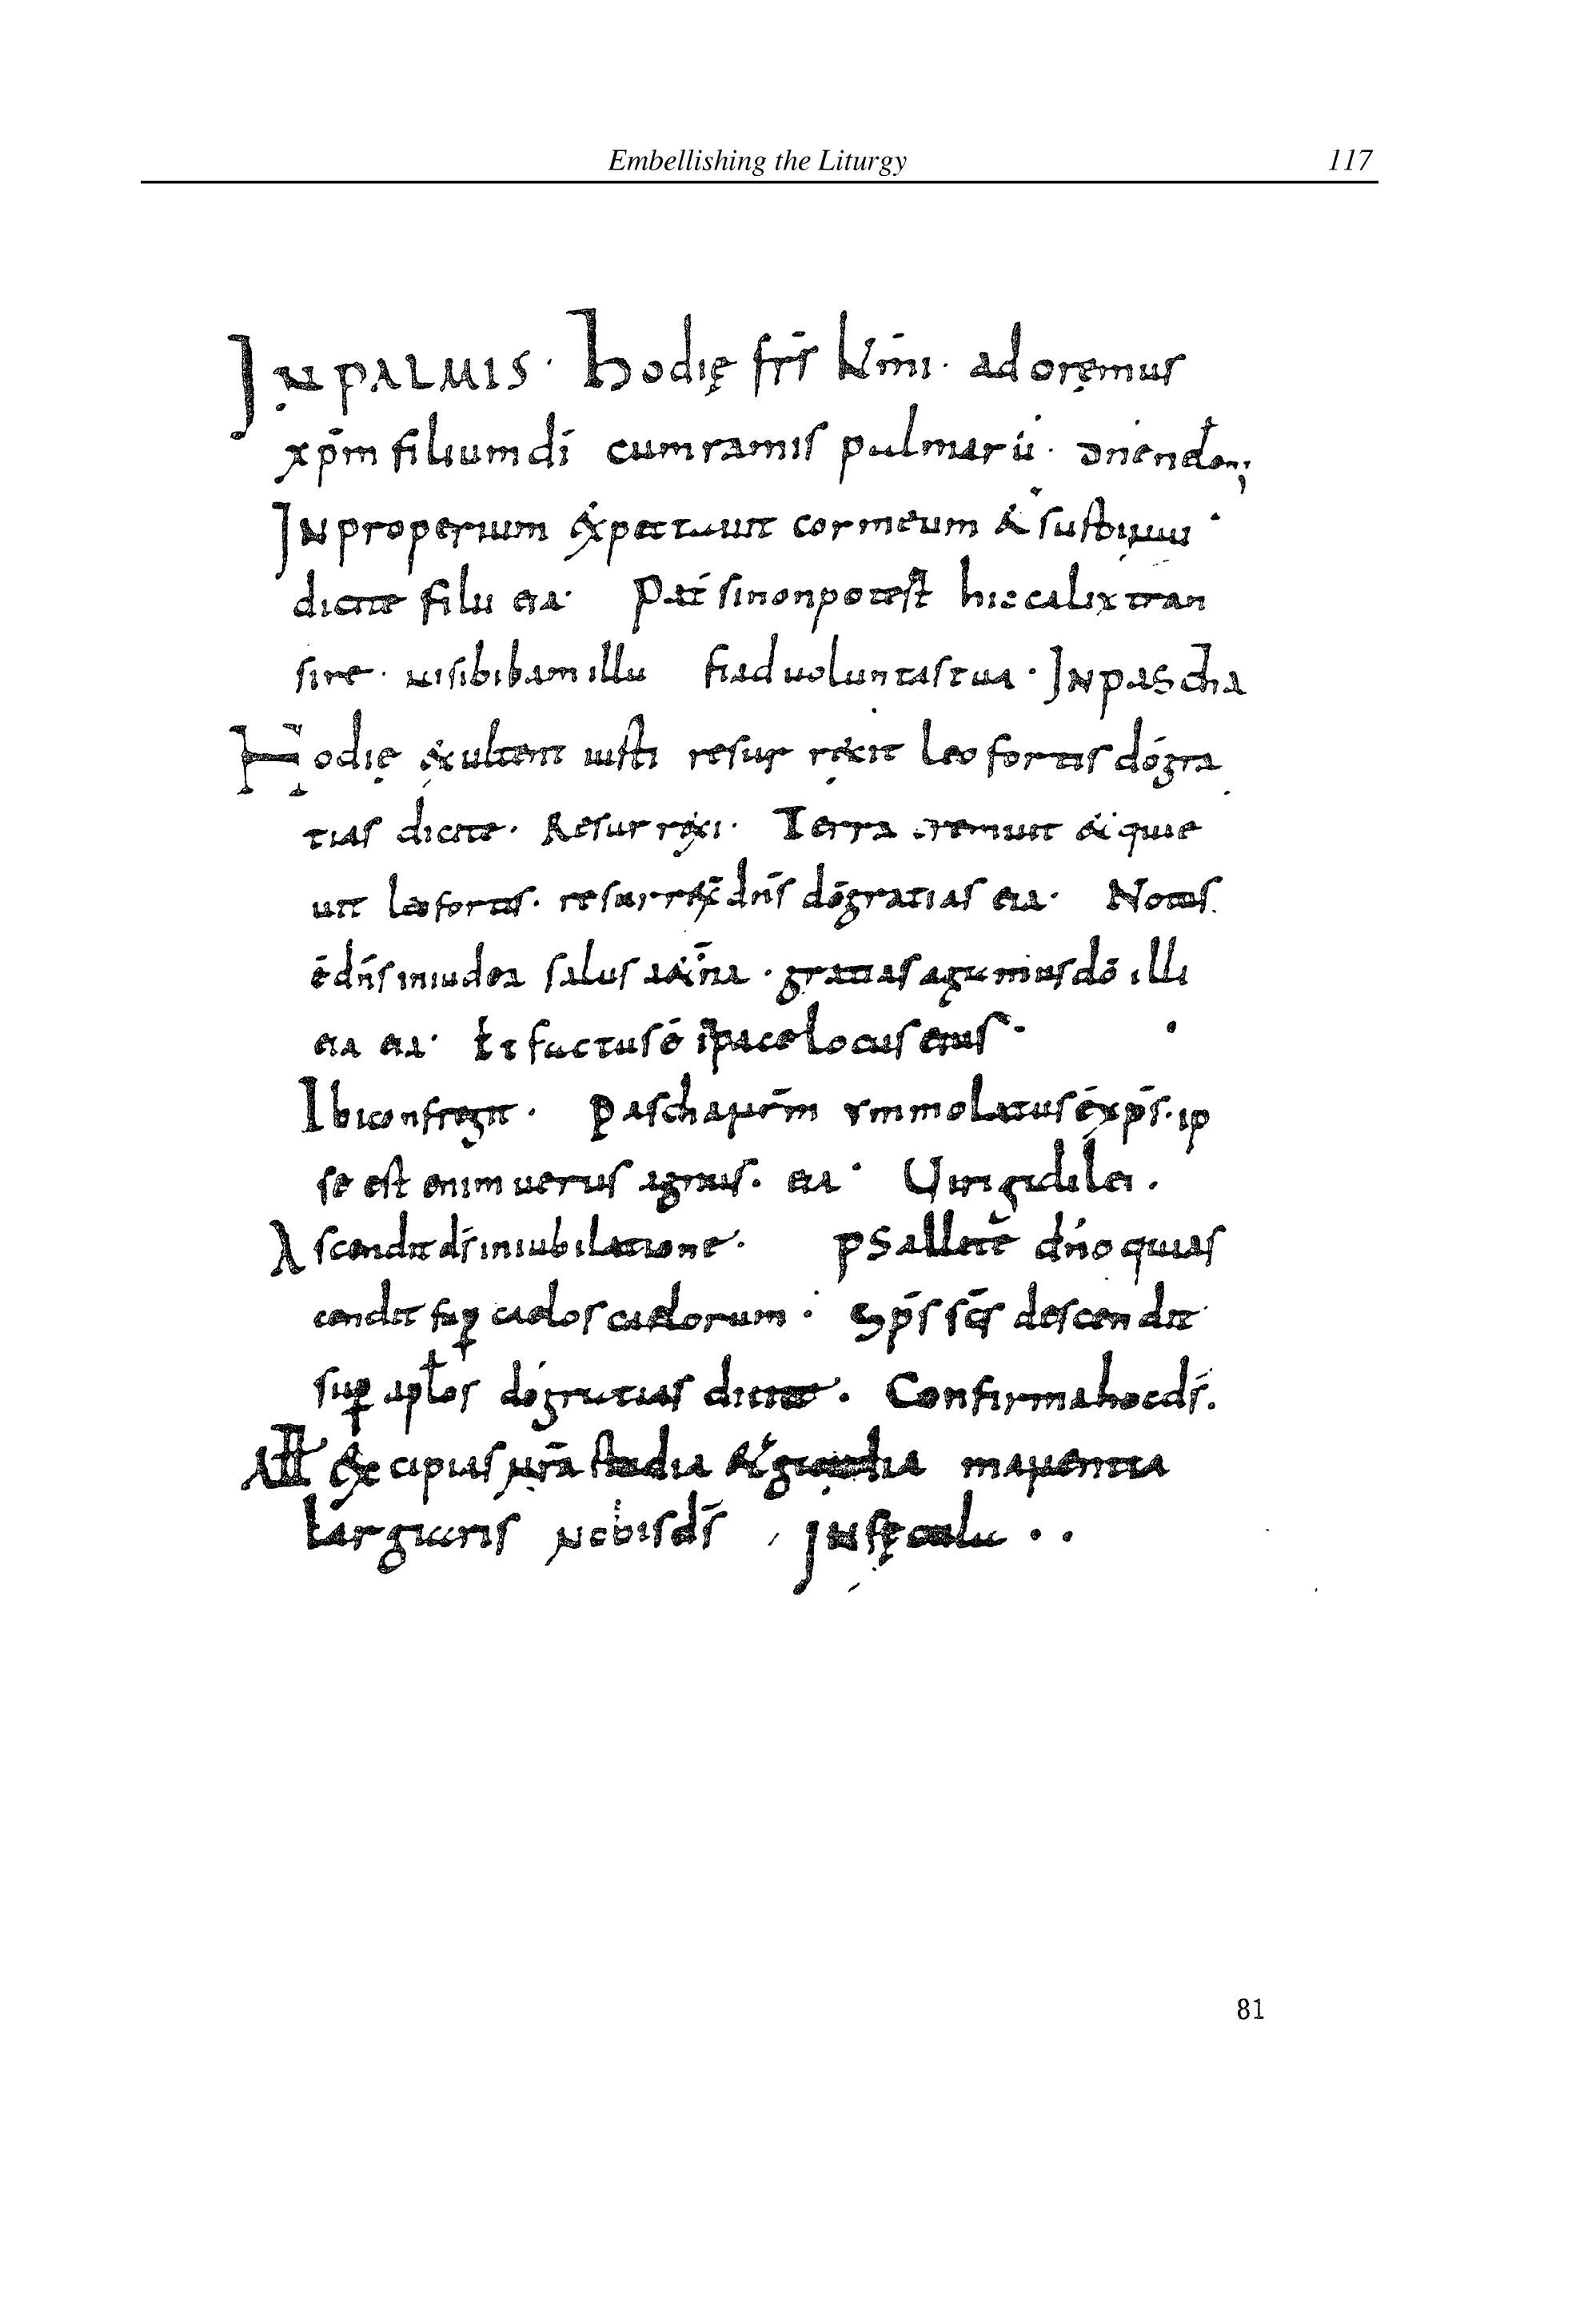 Embellishing the Liturgy 117
INPALMIS. hodię fr̄s k̄mi. adoręmus
xp̄m filium dī cum ramis palmarū.
INproperium expectauit cor meum &
dicite filii eia. Pat̄ si non potest hic calix tran
sire. nisi bibam illū fiad uoluntas tua. INpascha
Hodię exultent iusti resurrexit leo fortis dō gra
tias dicite. Resurrexi. Terra tremuit & quie
uit leo fortis. resurrex̄ dn̄s dō gratias eia. Notus
ē dn̄s in iudea salus aet̄na. gratias agumus dō illi
eia eia. Et factus ē ī pace locus eius.
Ibi confregit. Pascha nr̄m ymmolatus ē xp̄s. ip
se est enim uerus agnus. eia. Viri galilei.
Ascendit ds̄ in iubilatione. Psallite dn̄o qui as
cendit sup caelos caelorum. Sp̄s sc̄s descendit
sup apłos dō gratias dicite. Confirma hoc ds̄.
& gaudia
nobis ds̄
81